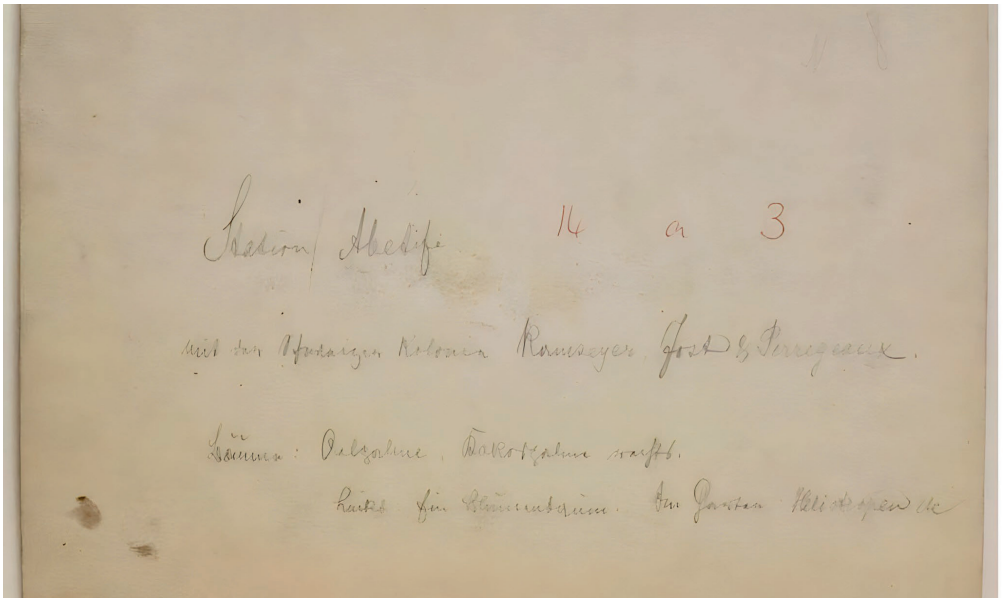 Station Abetifi 14 a 3
mit den Kolonien Ramseyer, Jost & Perregeaux.
Bäume: Oelpalme, Kokospalme rechts.
Links ein Blumenbaum. Im Garten Heliotropen etc